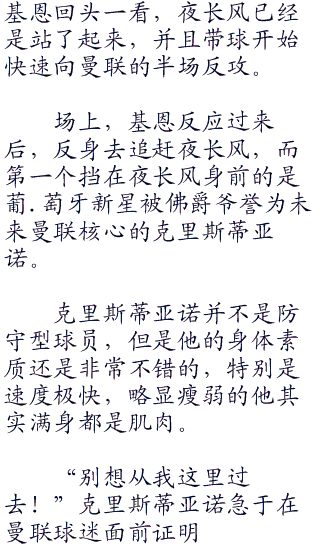 基恩回头一看，夜长风已经
是站了起来，并且带球开始
快速向曼联的半场反攻。
场上，基恩反应过来
后，反身去追赶夜长风，而
第一个挡在夜长风身前的是
葡．萄牙新星被佛爵爷誉为未
来曼联核心的克里斯蒂亚
诺。
克里斯蒂亚诺并不是防
守型球员，但是他的身体素
质还是非常不错的，特别是
速度极快，略显瘦弱的他其
实满身都是肌肉。
“别想从我这里过
去！”克里斯蒂亚诺急于在
曼联球迷面前证明